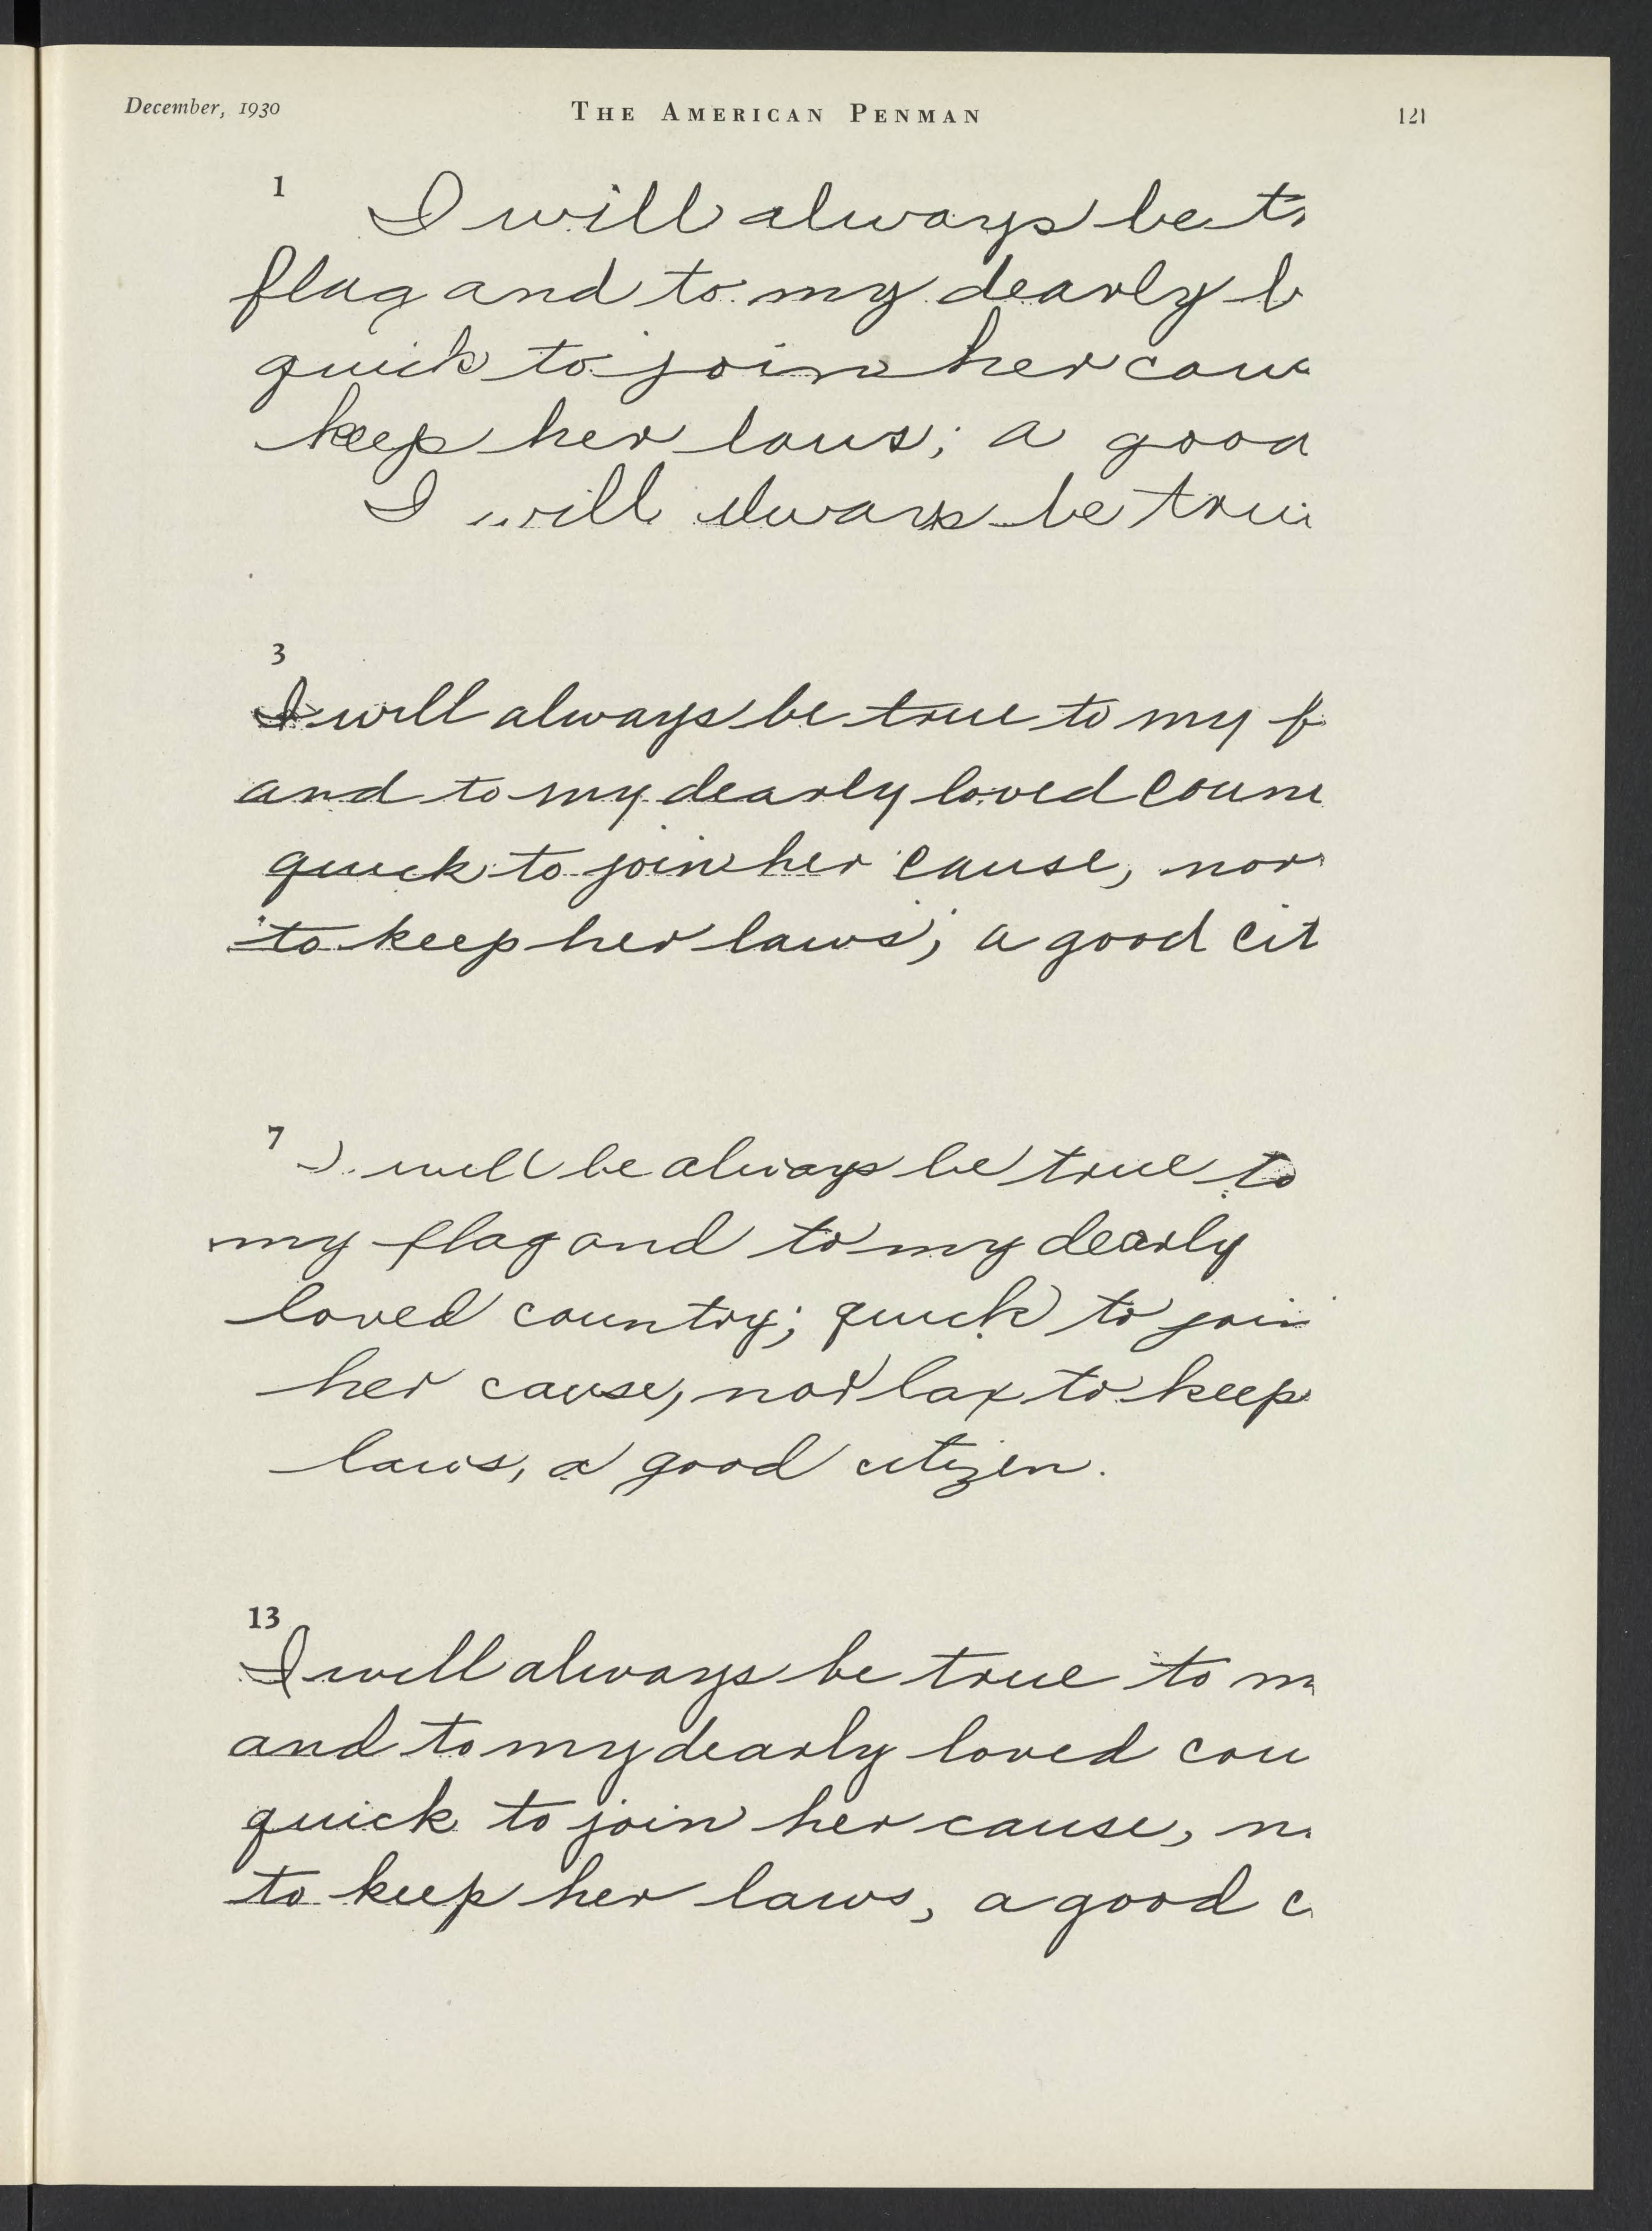 December, 1930
THE AMERICAN PENMAN
121
1
I will always be
flag and to my dearly
quick to join her
keep her laws; a
I will be
3
I will always be true to my
and to my dearly loved
quick to join her cause, nor
to keep her laws; a good cit
7
I will be always be true to
my flag and to my dearly
loved country; quick to join
her cause, nor lax to keep
laws, a good citizen.
13
I will always be true to
and to my dearly loved cou
quick to join her cause,
to keep her laws, a good c